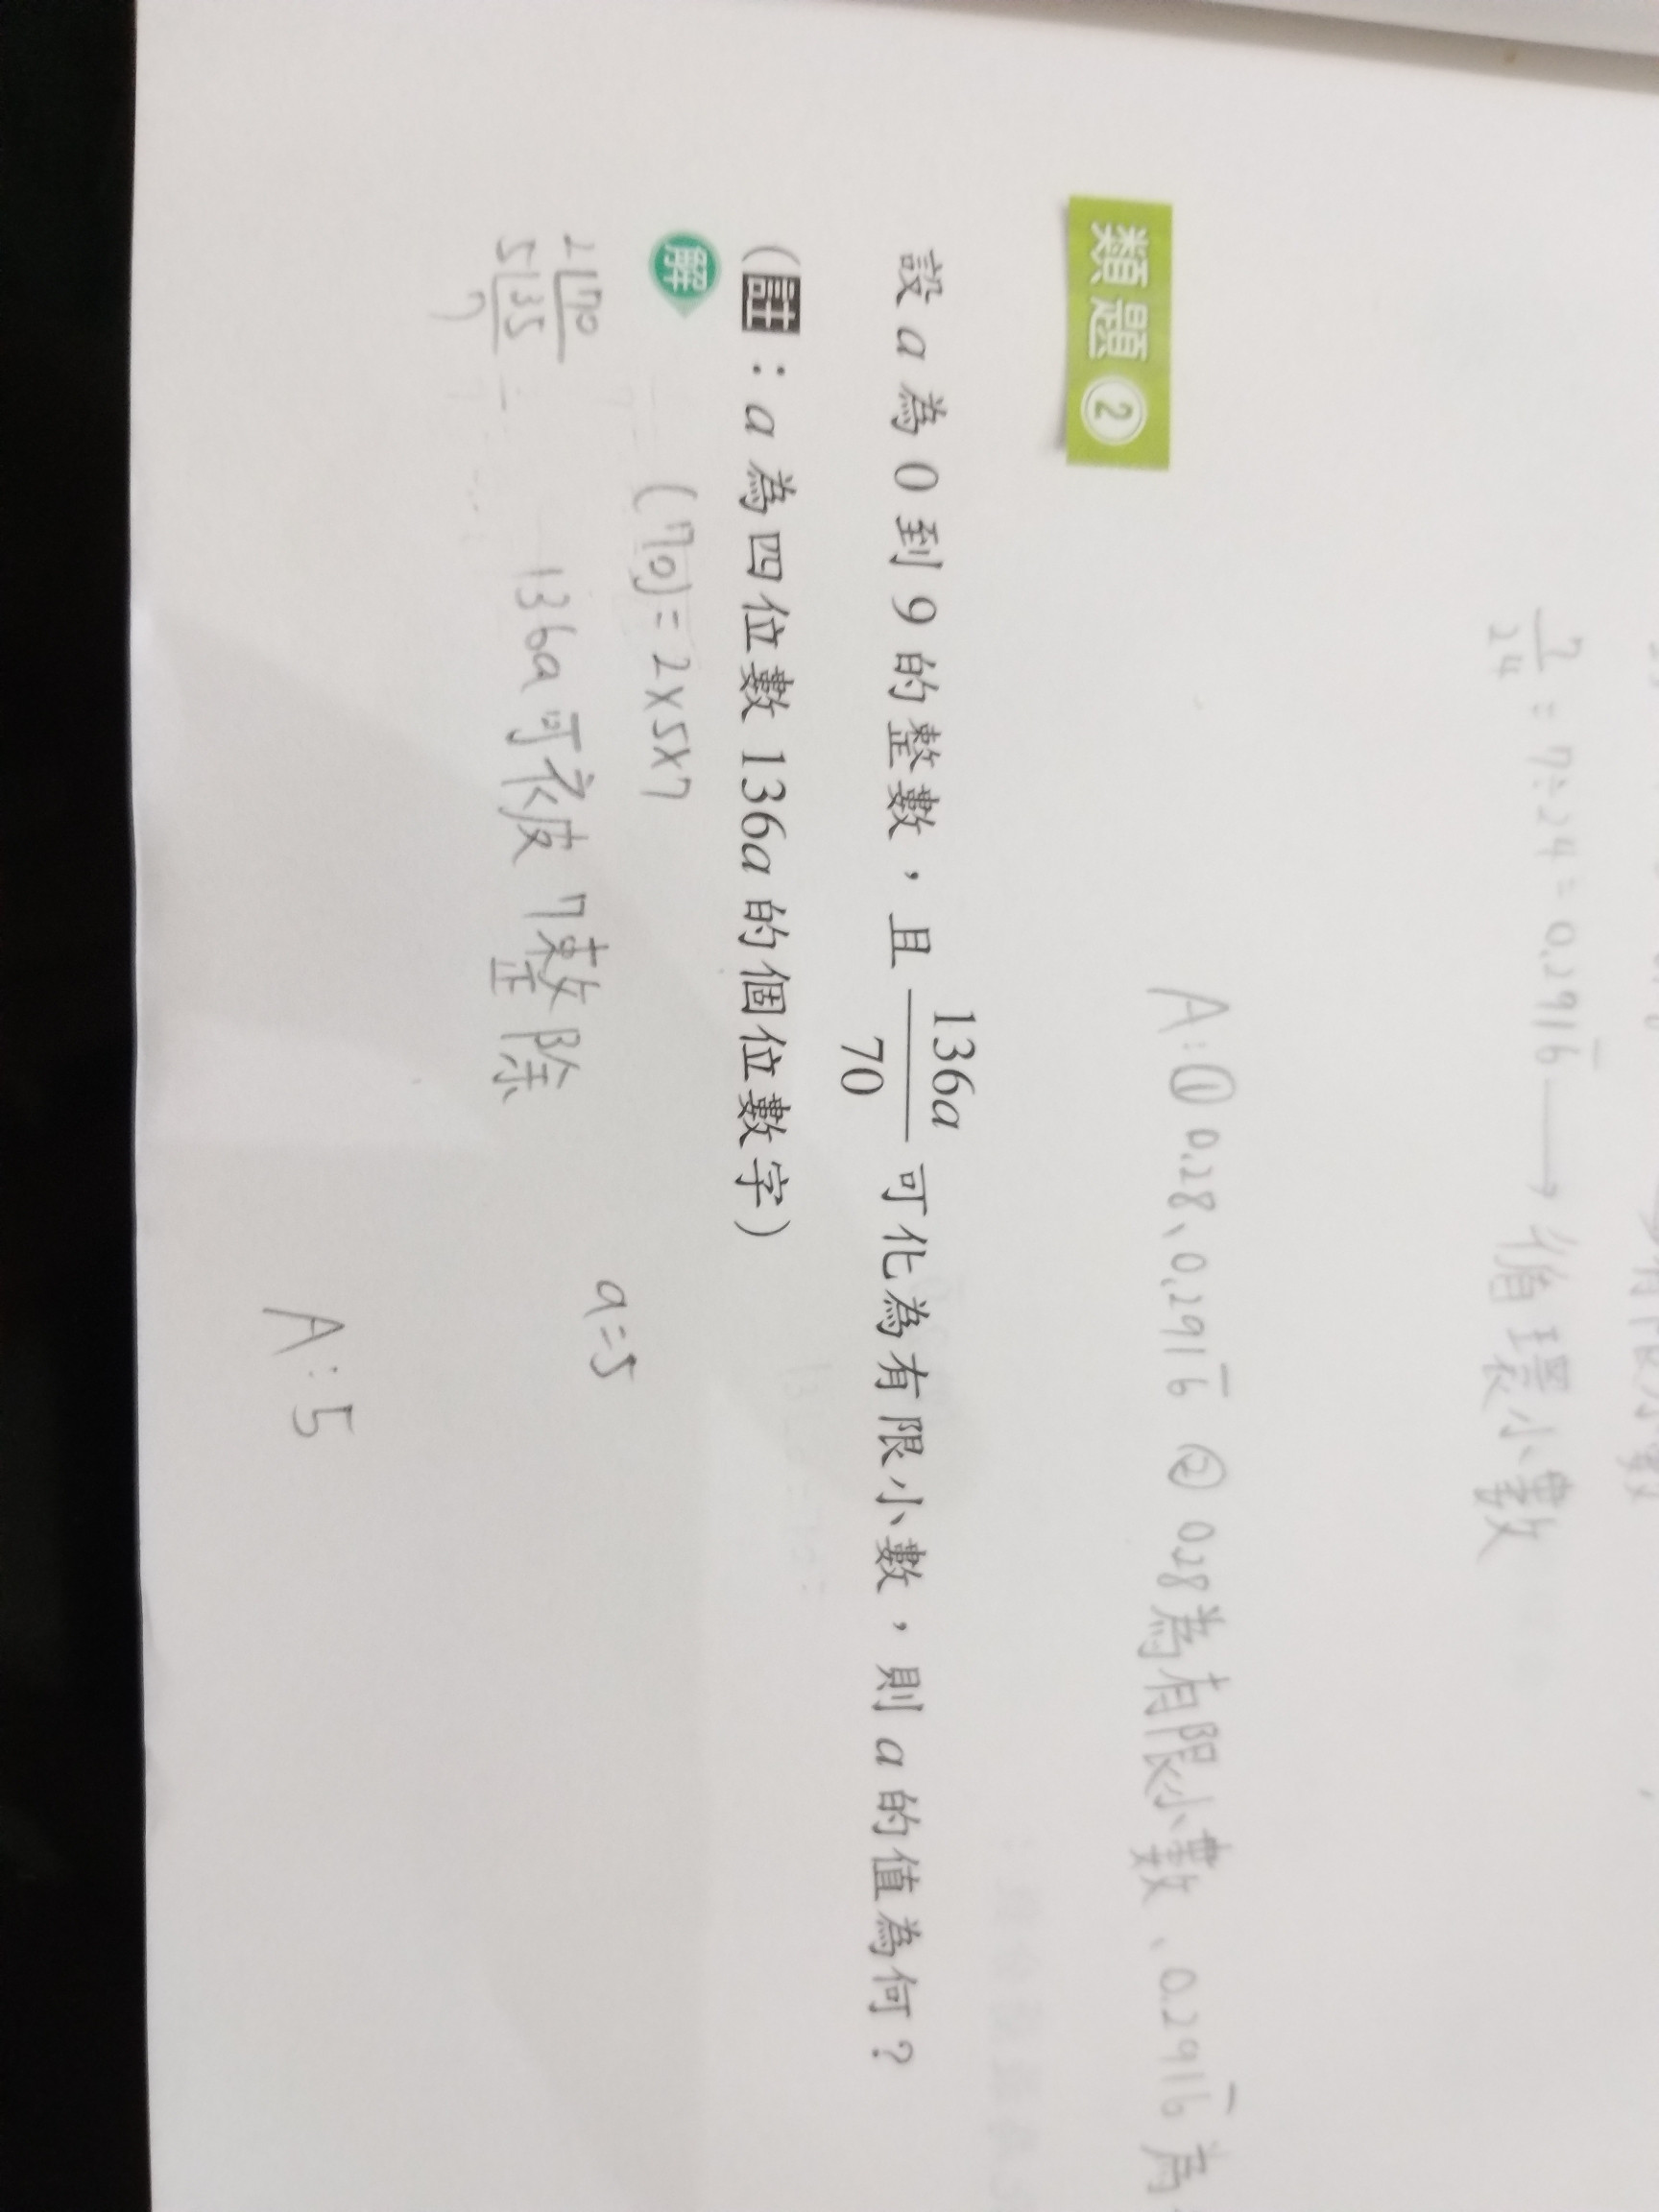 7/24 = 7÷24 = 0.2916̅ → 循環小數
A:① 0.28、0.2916̅ ② 0.28為有限小數、0.2916̅ 為
類題 2
設 a 為 0 到 9 的整數,且 136a/70 可化為有限小數,則 a 的值為何?
(註:a 為四位數 136a 的個位數字)
解
(70) = 2×5×7
2|70
5|35
7
136a可被 7整除
a=5
A:5